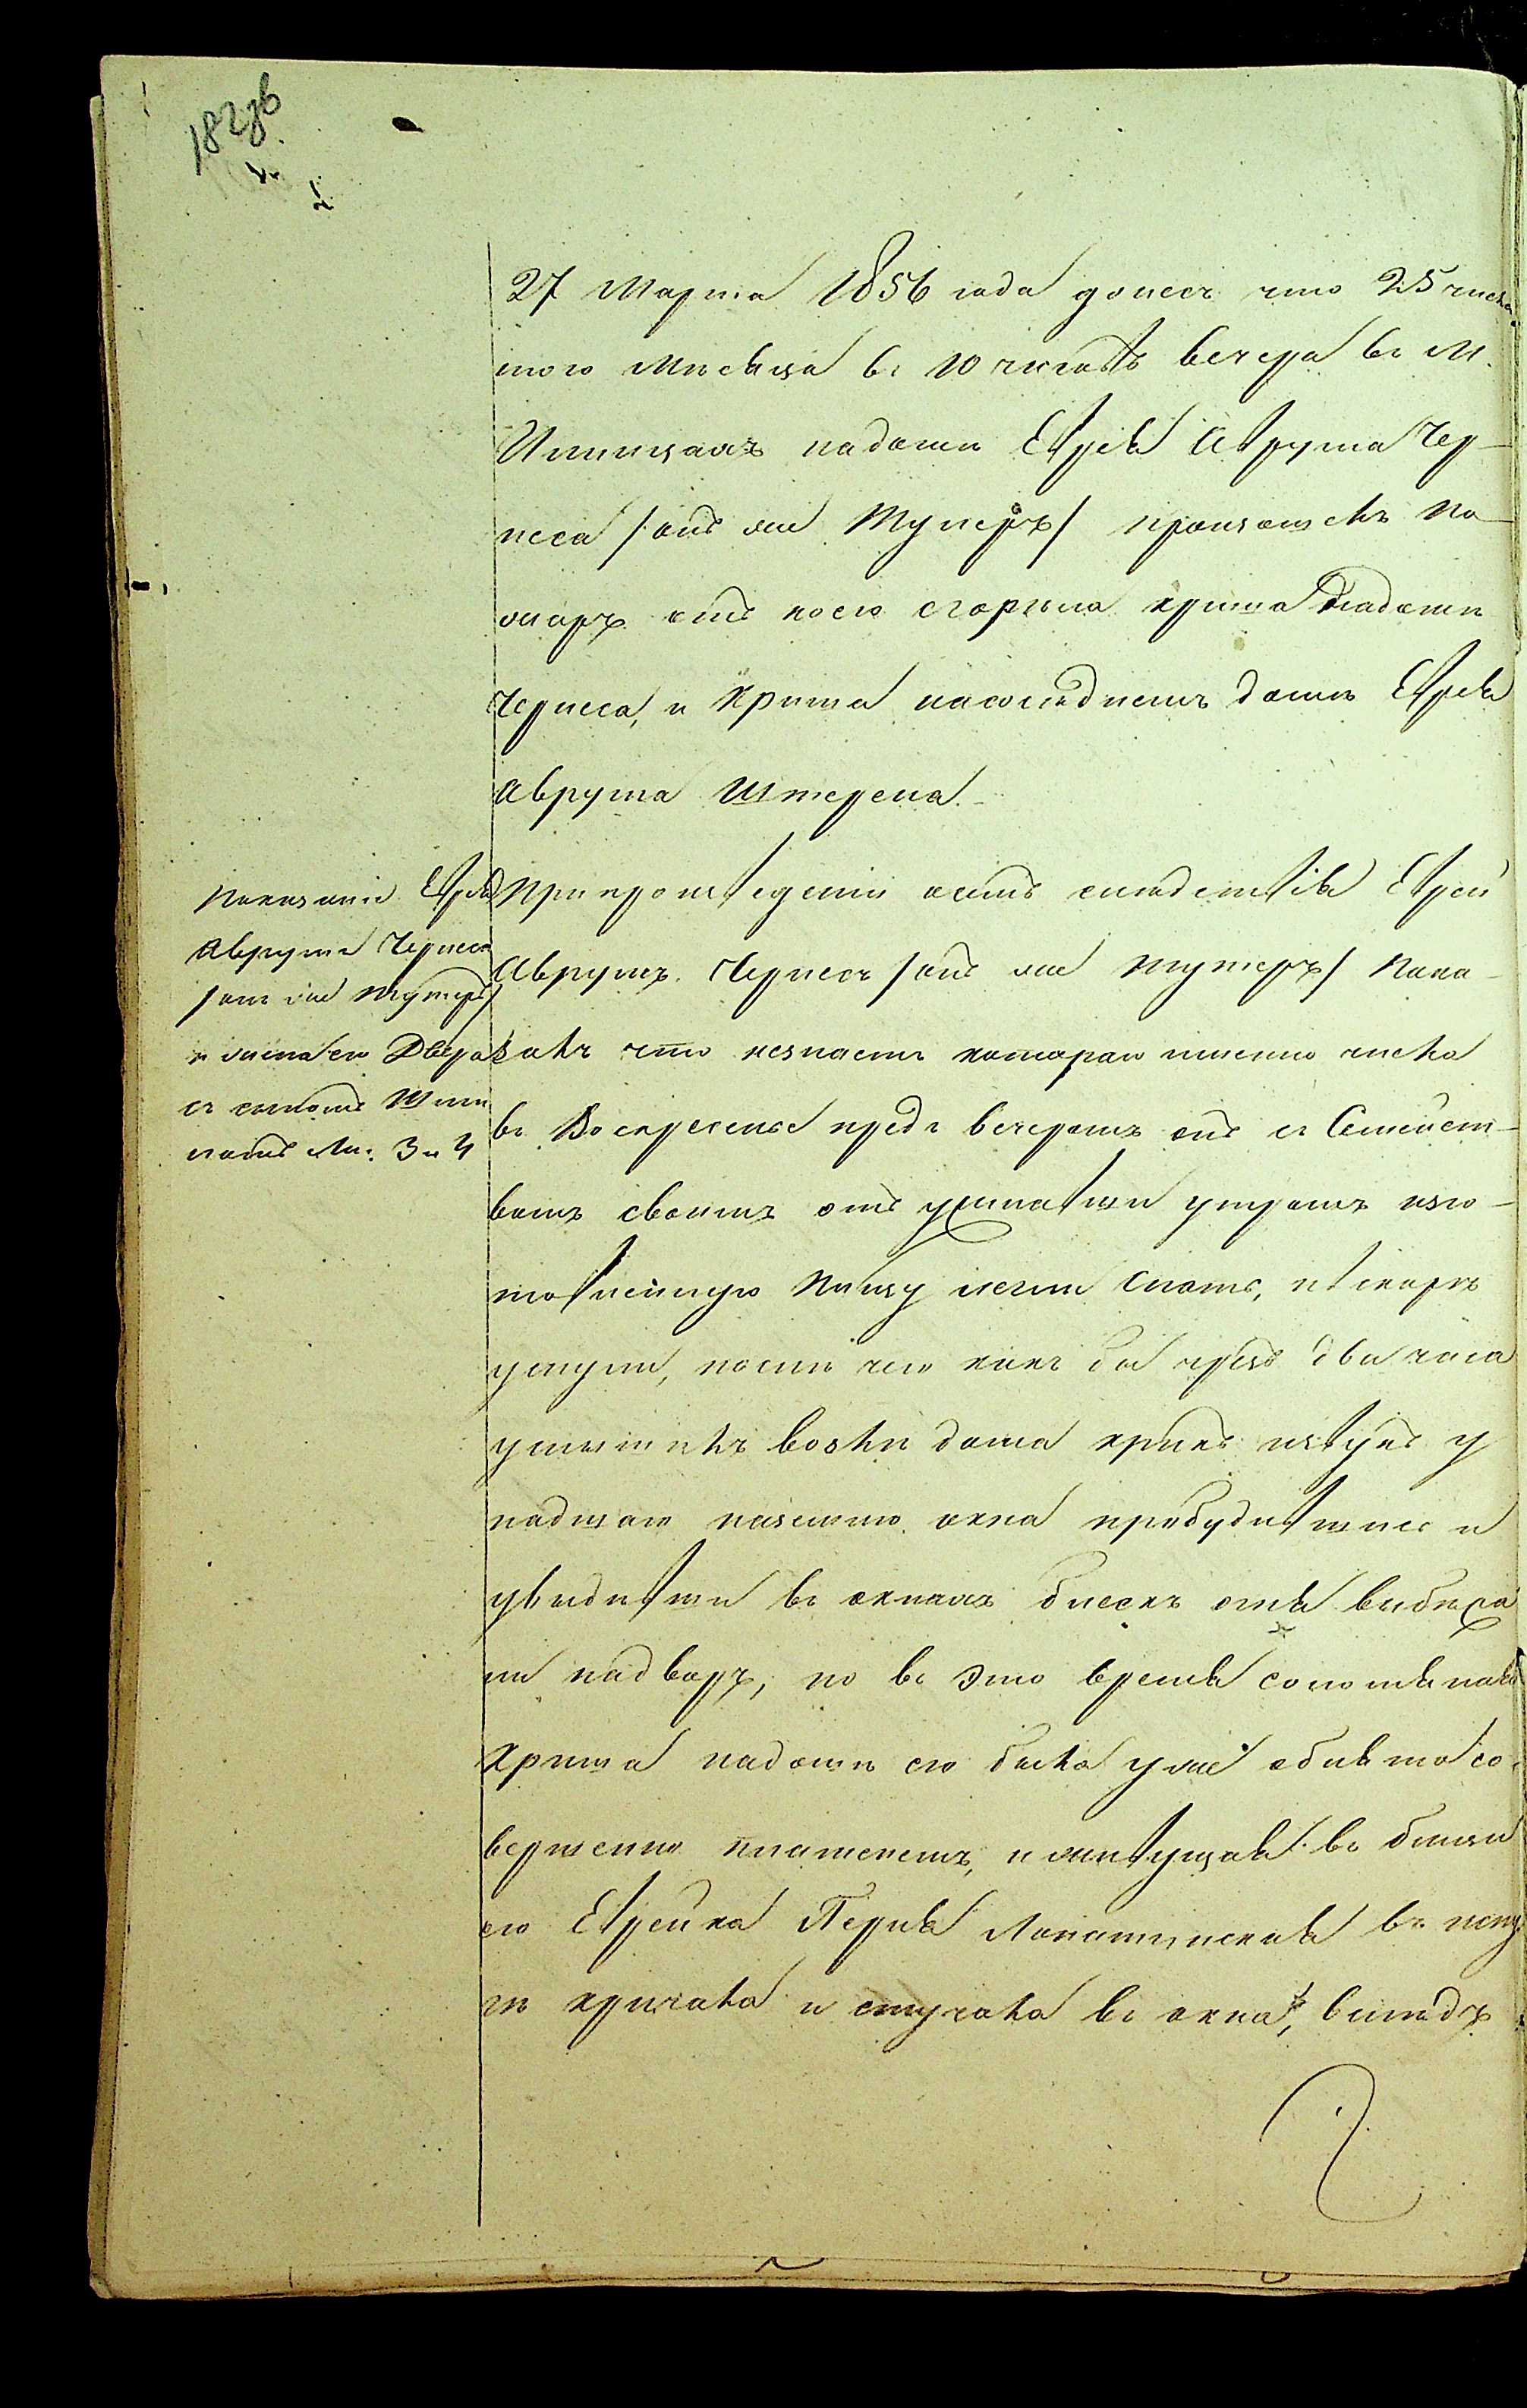 182зв
27 Марта 1856 года донес что 25 числа
того Месяца в 10 часовъ вечера в М.
надоми Еврея Аврума Чер-
неса /онъ же Тутеръ/ произошелъ по-
жаръ отъ коего сгорела крыша надоми
Чернеса, и крыша насоседнемъ доми Еврея
Аврума Штерена.
Показание Еврея
Аврума Чернеса
/онъ же Тутеръ/
и жена его Двера
съ сыномъ
Ли: 3 и 4
При произведении осемъ следствия Еврей
Аврумъ Чернесъ /онъ же Тутеръ/ пока-
залъ что незнаетъ котораго именно числа
в Воскресенье предъ вечеромъ онъ съ Семейст-
вомъ своимъ отъужинавши утромъ изго-
товленную пищу легли спать, и вскоре
уснули, после чего какъ бы чрезъ два часа
услышилъ возли дома крикъ извукъ у
падшаго наземлю окна пробудившись и
увидивши въ окнахъ блескъ огня выбежа
ли надворъ, но въ это время соломянная
крыша надоми его была уже обнята со-
вершенно пламенемъ, и живущая въ близи
его Еврейка Перля въ испу-
ге кричала и стучала въ окна, вследъ